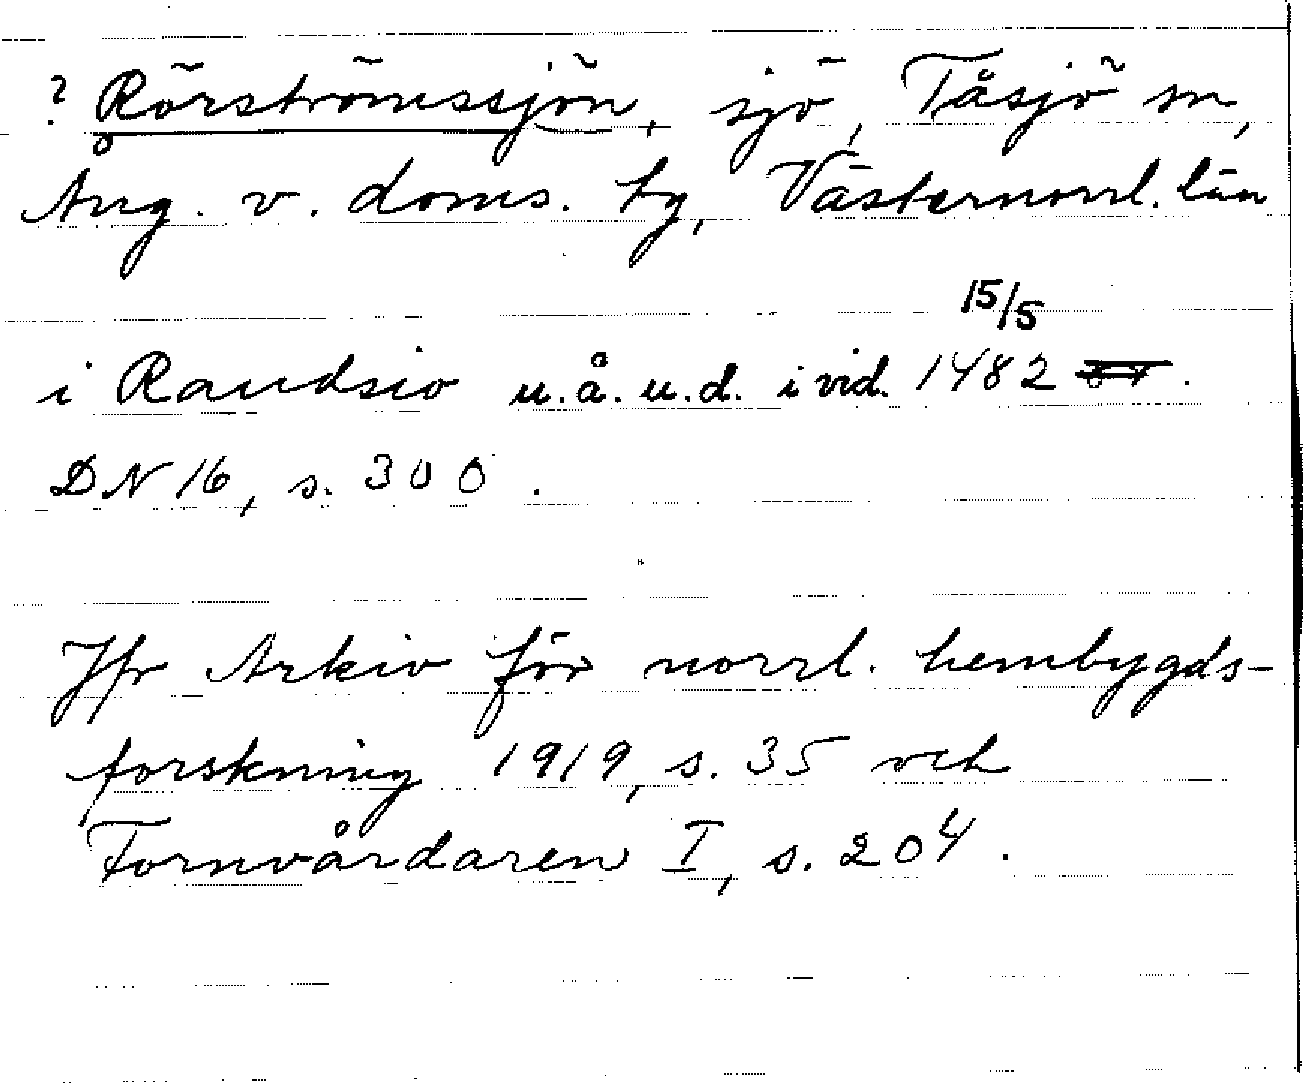 ? Rörströmssjön, sjö, Tåsjö sn,
Ång. v. doms. tg, Västernorrl. län
15/5
i Raudsio u.å.u.d. i vid. 1482 .
DN 16, s. 300 .
Jfr Arkiv för norrl. hembygds-
forskning 1919, s. 35 och
Fornvårdaren I, s. 204 .